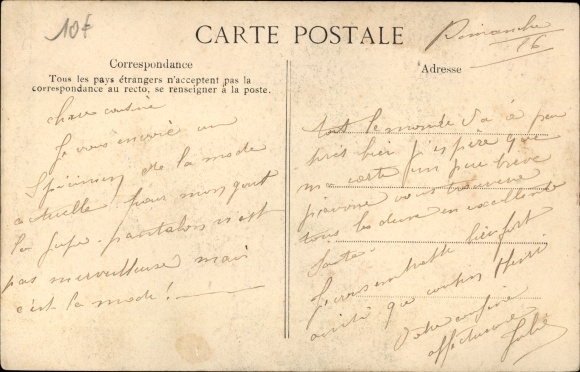 10f
CARTE POSTALE
Dimanche
16
Correspondance
Tous les pays étrangers n'acceptent pas la
correspondance au recto, se renseigner à la poste.
Adresse
chère cousine
Je vous envoie un
spécimen de la mode
actuelle pour mon gout
la jupe-pantalon n'est
pas merveilleuse mais
c'est la mode !
tout le monde va à peu
près bien j'espère que
ma carte un peu brève
vous trouvera
tous les deux en excellente
santé.
Je vous embrasse bien fort
ainsi que cousin Henri
Votre cousine
affectueuse